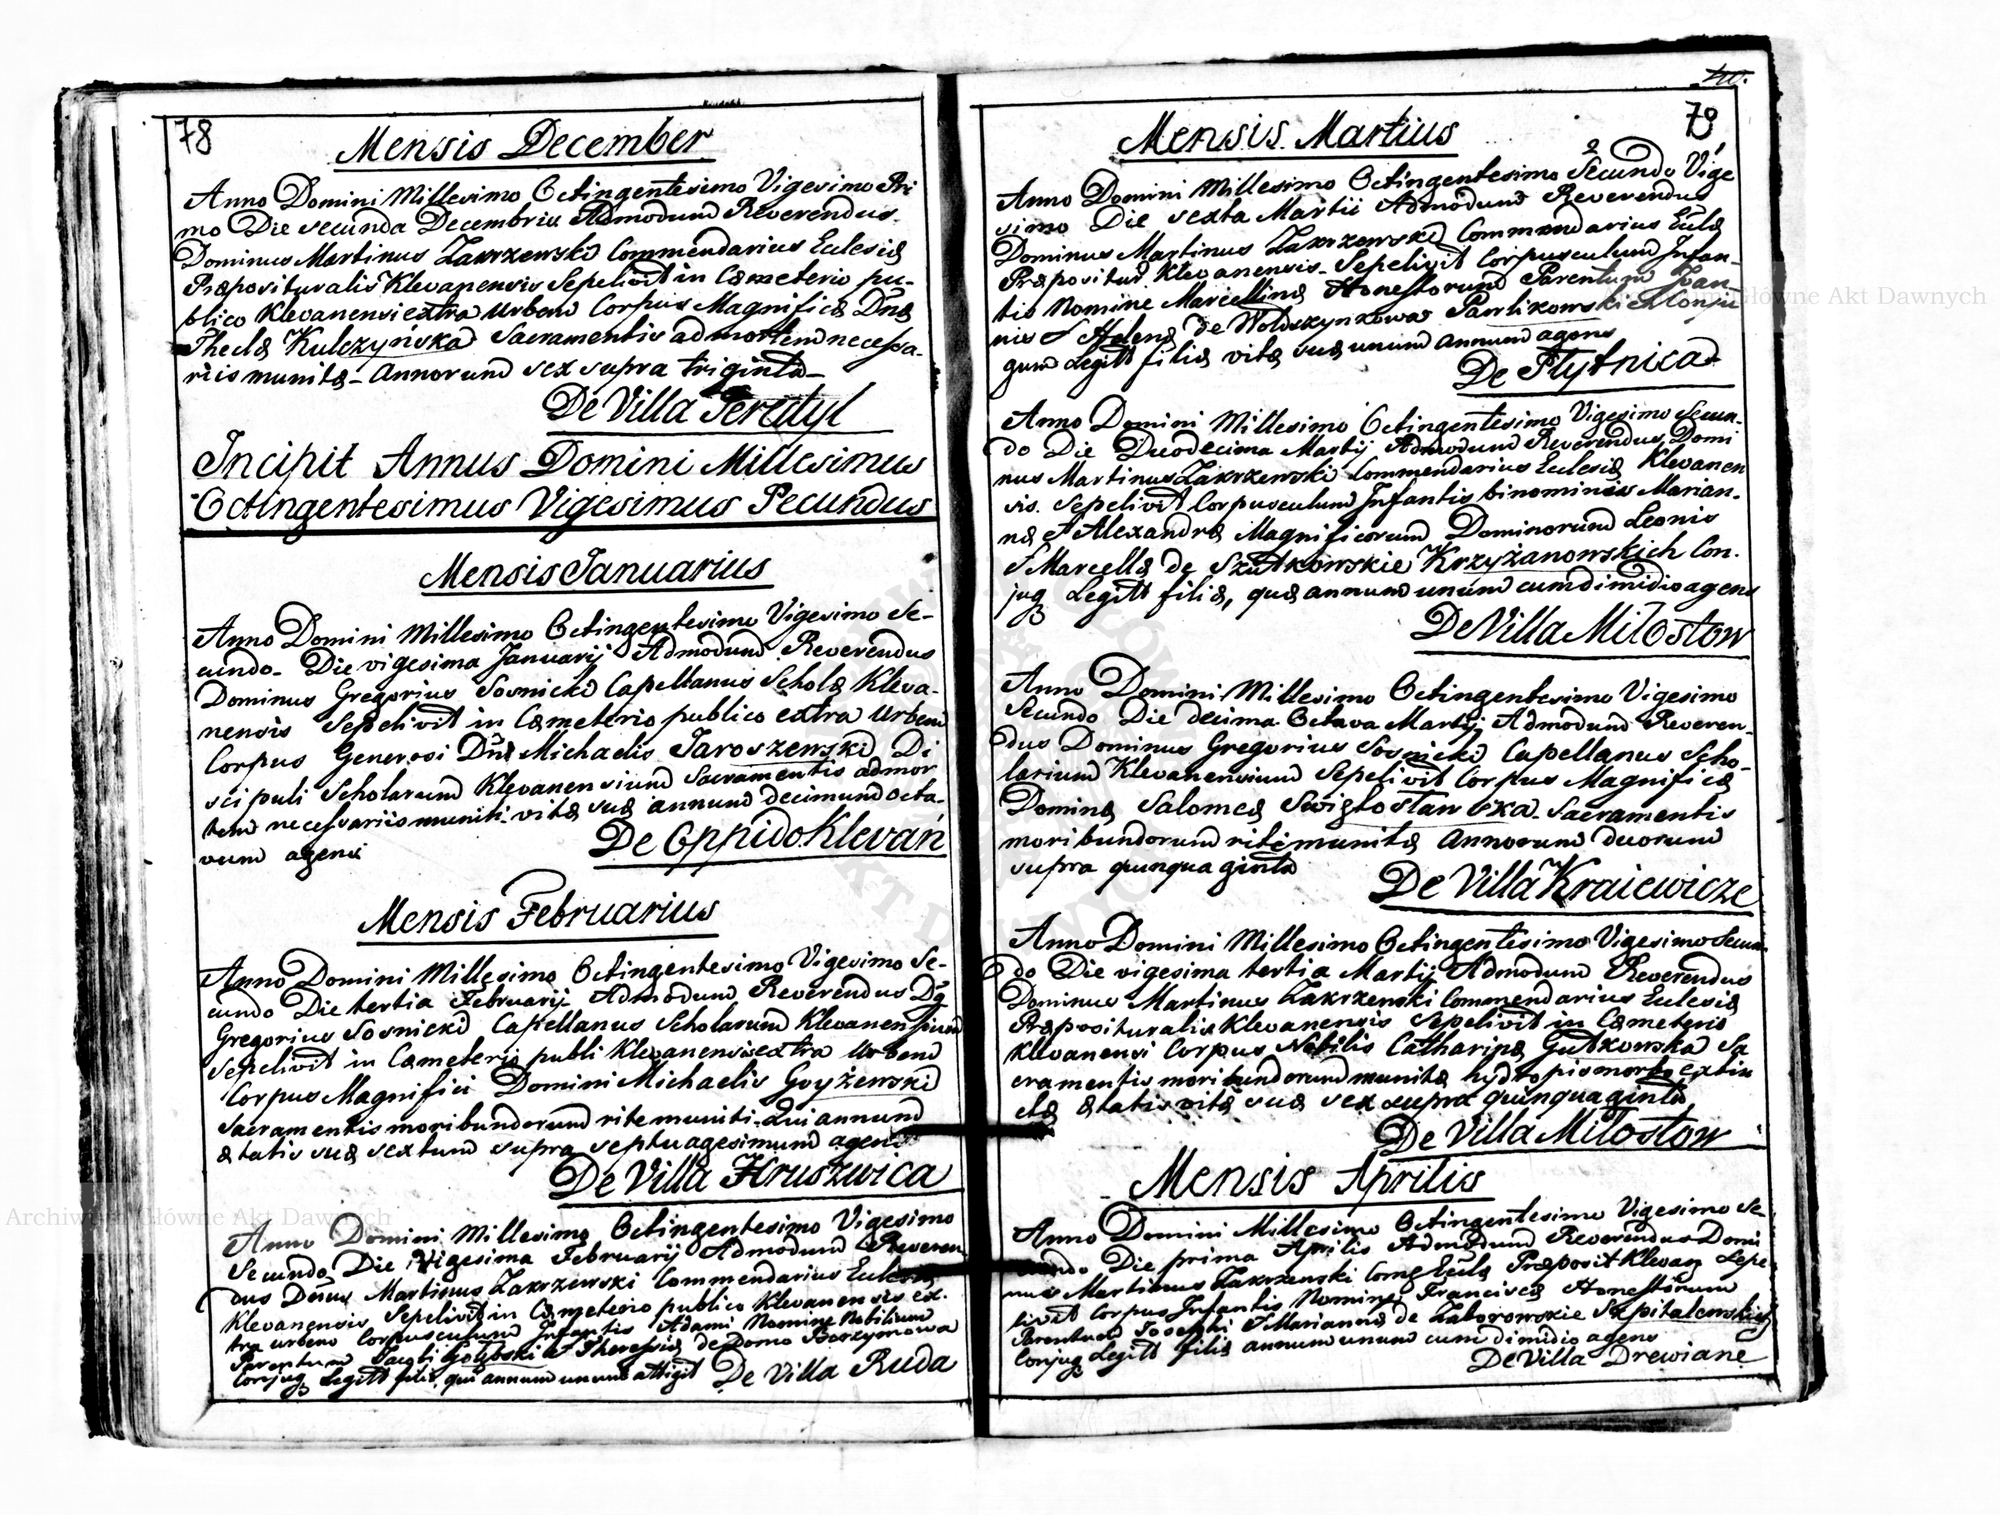 78
Mensis December
Anno Domini Millesimo Octingentesimo Vigesimo Pri
mo Die secunda Decembris Admodum Reverendus
Dominus Martinus Zakrzewski Commendarius Eclesiæ
Præposituralis Klevanensis Sepelivit in Cæmeterio pu-
blico Klevanensi extra Urbem Corpus Magnificæ Dnæ
Theclæ Kulczyńska Sacramentis ad mortem necessa-
riis munitæ - Annorum sex supra triginta -
De Villa Peredyl
Incipit Annus Domini Millesimus
Octingentesimus Vigesimus Secundus
Mensis Januarius
Anno Domini Millesimo Octingentesimo Vigesimo Se-
cundo - Die vigesima Januarij Admodum Reverendus
Dominus Gregorius Sosnicki Capellanus Scholæ Kleva-
nensis Sepelivit in Cæmeterio publico extra Urbem
Corpus Generosi Dni Michaelis Jaroszewski Di
scipuli Scholarum Klevanensium Sacramentis admor
tem necessariis muniti vitæ suæ annum decimum octa-
vum agens
De Oppido Klevań
Mensis Februarius
Anno Domini Millesimo Octingentesimo Vigesimo Se-
cundo Die tertia Februarij Admodum Reverendus Dŷ
Gregorius Sosnicki Capellanus Scholarum Klevanensium
Sepelivit in Cæmeterio publi Klevanensi extra Urbem
Corpus Magnifici Domini Michaelis Gyżewski
Sacramentis moribundorum rite muniti. Qui annum
ætatis suæ sextum supra septuagesimum agens
De Villa Hruszwica
Anno Domini Millesimo Octingentesimo Vigesimo
Secundo Die Vigesima Februarij Admodum Reveren
dus Dnus Martinus Zakrzewski Commendarius Eclesiæ
Klevanensis Sepelivit in Cæmeterio publico Klevanensis ex.
tra urbem Corpusculum Infantis Adami Nomine Nobilium
Parentum Jacobi Gołębski et Theressiæ de Domo Borzymowa
Conjug Legitt filii, qui annum unum attigit De Villa Ruda
79
Mensis Martius
Anno Domini Millesimo Octingentesimo Secundo 2 Vige
simo Die sexta Martii Admodum Reverendus
Dominus Martinus Zakrzewski Commendarius Eclæ
Præpositur Klevanensis - Sepelivit Corpusculum Infan-
tis Nomine Marcellinæ Honestorum Parentum Joan
nis et Helenæ de Wołoszynkowa Pawlikowskie Conju
gum Legitt filiæ vitæ suæ unum annum agens
De Stytnica
Anno Domini Millesimo Octingentesimo Vigesimo Secun-
do Die Duodecima Martij Admodum Reverendus Domi
nus Martinus Zakrzewski Commendarius Eclesiæ Klevanen
sis. Sepelivit Corpusculum Infantis binominis Marian-
næ et Alexandræ Magnificorum Dominorum Leonis
et Marcellæ de Szutkowskie Krzyżanowskich Con.
jug Legitt filiæ, quæ annum unum cum dimidio agens
De Villa Miłostow
Anno Domini Millesimo Octingentesimo Vigesimo
Secundo Die decima Octava Martij Admodum Reveren-
dus Dominus Gregorius Sosnicki Capellanus Scho-
larium Klevanensium Sepelivit Corpus Magnificæ
Dominæ Salomeæ Swięłosławska. Sacramentis
moribundorum rite munitæ Annorum duorum
supra quinquaginta
De Villa Kraiewicze
Anno Domini Millesimo Octingentesimo Vigesimo Secun
do Die vigesima tertia Martij Admodum Reverendus
Dominus Martinus Zakrzewski Commendarius Eclesiæ
Præposituralis Klevanensis Sepelivit in Cæmeterio
Klevanensi Corpus Nobilis Catharinæ Gutkowska Sa
cramentis moribundorum munitæ hydropis morbo extin
ctæ ætatis vitæ suæ sex supra quinquaginta
De Villa Miłostow
Mensis Aprilis
Anno Domini Millesimo Octingentesimo Vigesimo Se-
cundo Die prima Aprilis Admodum Reverendus Domi
nus Martinus Zakrzewski Comę Eclæ Præposit Klevan Sepe
livit Corpus Infantis Nomine Franciscæ Honestorum
Parentum Josephi et Mariannæ de Zaborowskie Szpitalewskich
Conjug Legitt filiæ annum unum cum dimidio agens
De Villa Drewiane
Archiwum Główne Akt Dawnych
Archiwum Główne Akt Dawnych